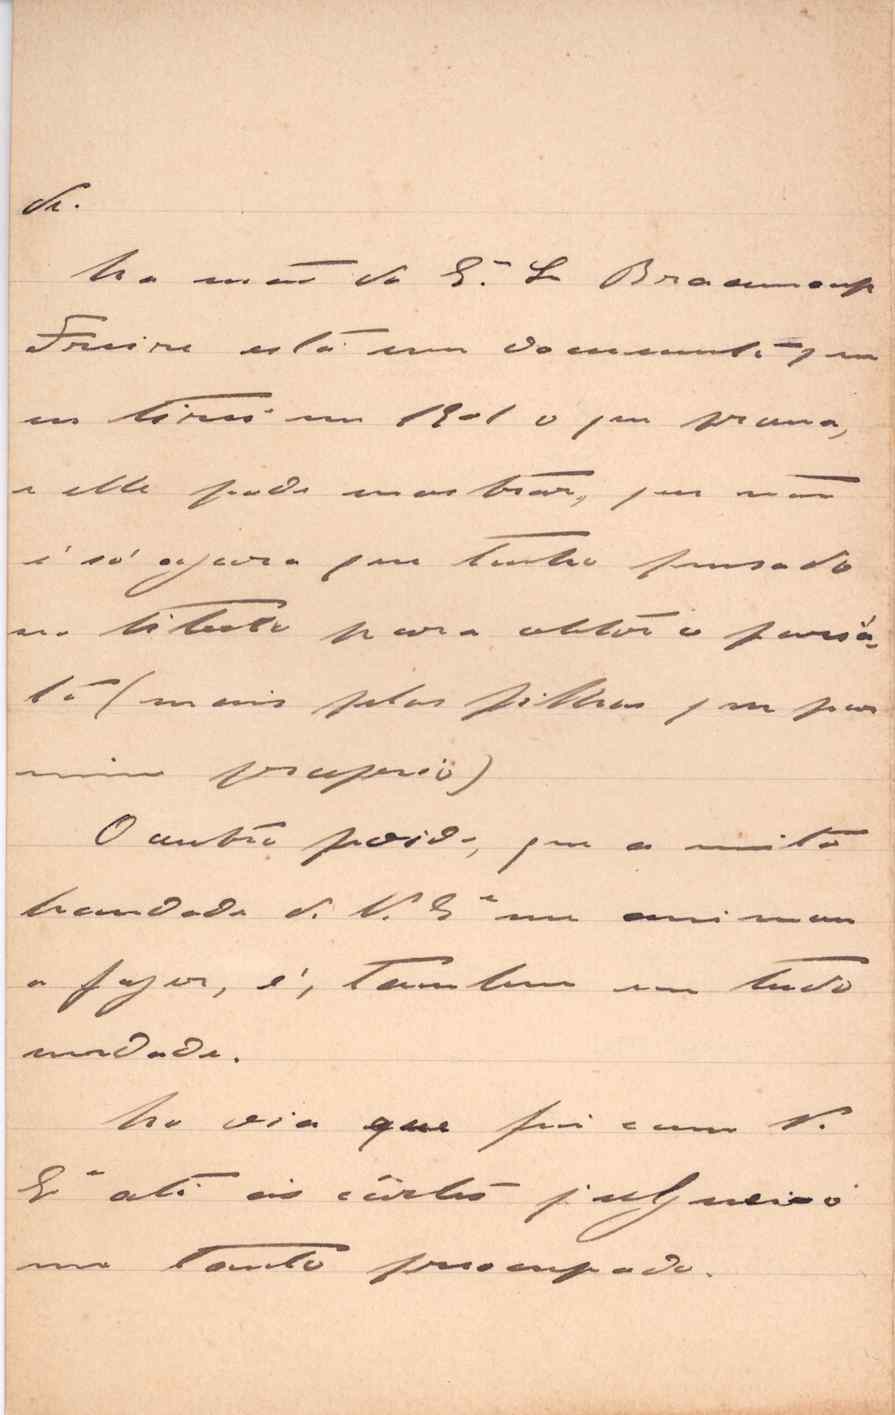 de.
Na mão do Exmo Sr Braamcamp
Freire está um documento que
eu tirei em 1901 o que prova,
e elle pode mostrar, que não
é só agora que tenho pensado
no titulo para obter o pariá-
to (mais pelos filhos que por
mim proprio)
O outro pedido, que a muita
bondade de V. Exª me animou
a fazer, é, tambem em tudo
verdade.
No dia que fui com V.
Exª até ás côrtes julguei-o
um tanto preocupado.